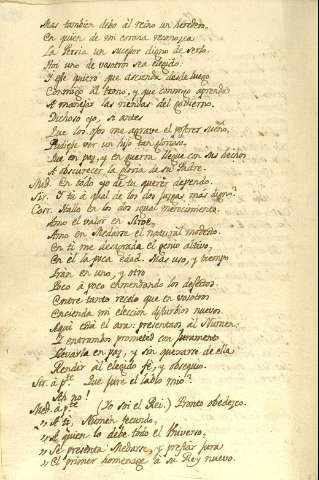 Mas tambien debo al reino un heredero,
En quien de mi corona reconozca
La Persia un sucesor digno de serlo.
Hoy uno de vosotros sea elegido:
Y ese quiero que ascienda desde luego
Conmigo al trono, y que conmigo aprenda
A manejar las riendas del govierno.
Dichoso yo, si antes
Que los ojos me agrave el postrer sueño,
Pudiese ver un hijo tan glorioso,
Que en paz, y en guerra llegue con sus hechos
A obscurecer la gloria de su Padre.
Med. En todo yo de tu querer dependo.
Sir. Y tú á qual de los dos juzgas mas digno?
Cosr. Hallo en los dos igual merecimiento.
Amo el valor en Siroe,
Amo en Medarse el natural modesto.
En ti me desagrada el genio altivo,
En él la poca edad. Mas uso, y tiempo
Irán en uno, y otro
Poco á poco enmendando los defectos.
Entre tanto recelo que en vosotros
Encienda mi eleccion disturbios nuevos.
Aqui está el ara: presentaos al Numen:
Y entrambos prometed con juramento
Llevarla en paz, y sin quexarse de ella
Rendir al elegido fé, y obsequio.
Sir. á pte. Que jure el labio mio?
Ah no!
Med. á pte. (Yo soi el Rei.) Pronto obedezco.
" A ti, Numen fecundo,
" A quien lo debe todo el Universo,
" Se presenta Medarse, y prestar jura
" El primer homenage á su Rey nuevo.